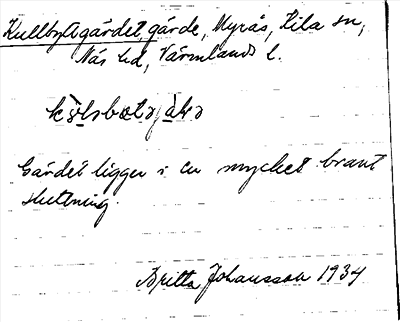 Kullbytagärdet, gärde, Myrås, Kila sn,
Näs hd, Värmlands l.
Gärdet ligger i en mycket brant
sluttning.
Britta Johansson 1934